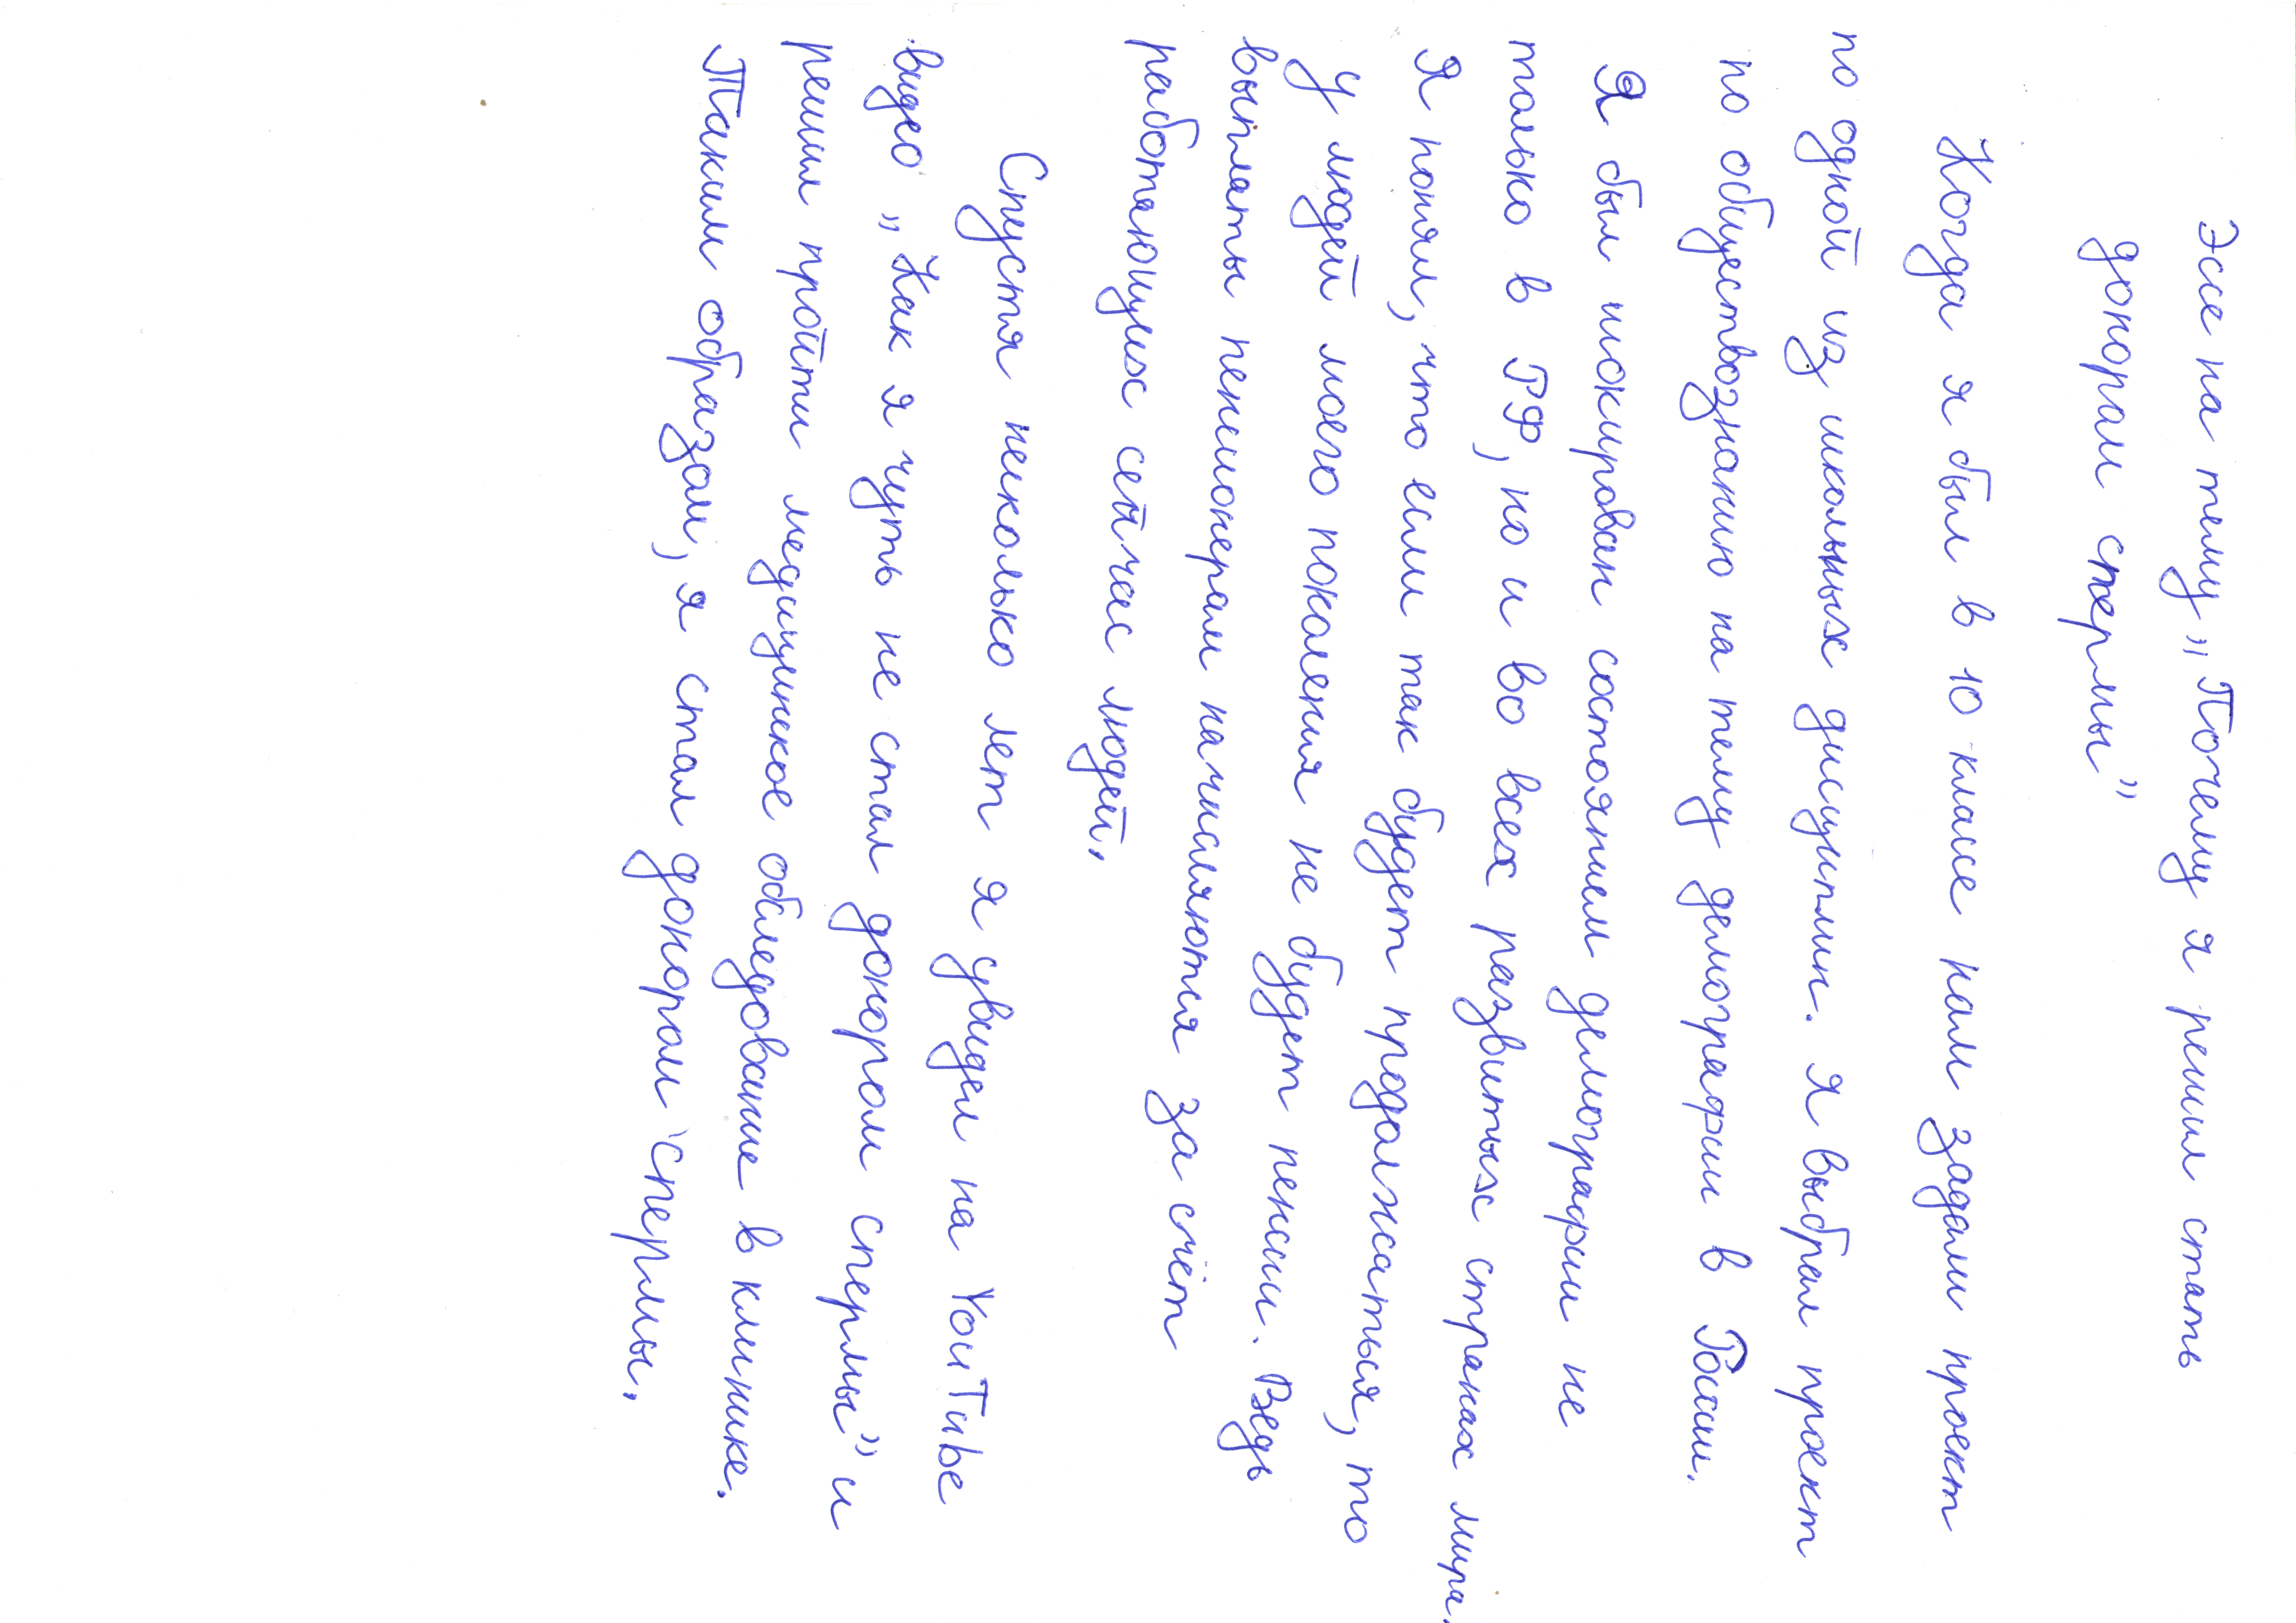 Эссе на тему „Почему я решил стать
донором спермы"
Когда я был в 10 классе нам задали проект
по одной из школьных дисциплин. Я выбрал проект
по обществознанию на тему демографии в России.
Я был шокирован состоянием демографии не
только в РФ, но и во всех развитых странах мира.
Я понял, что если так будет продолжаться, то
у людей моего поколения не будет пенсии. Ведь
выплаты пенсионерам начисляются за счёт
работающих сейчас людей.
Спустя несколько лет я увидел на YouTube
видео „Как я чуть не стал донором спермы" и
решил пройти медицинское обследование в клинике.
Таким образом, я стал донором спермы.